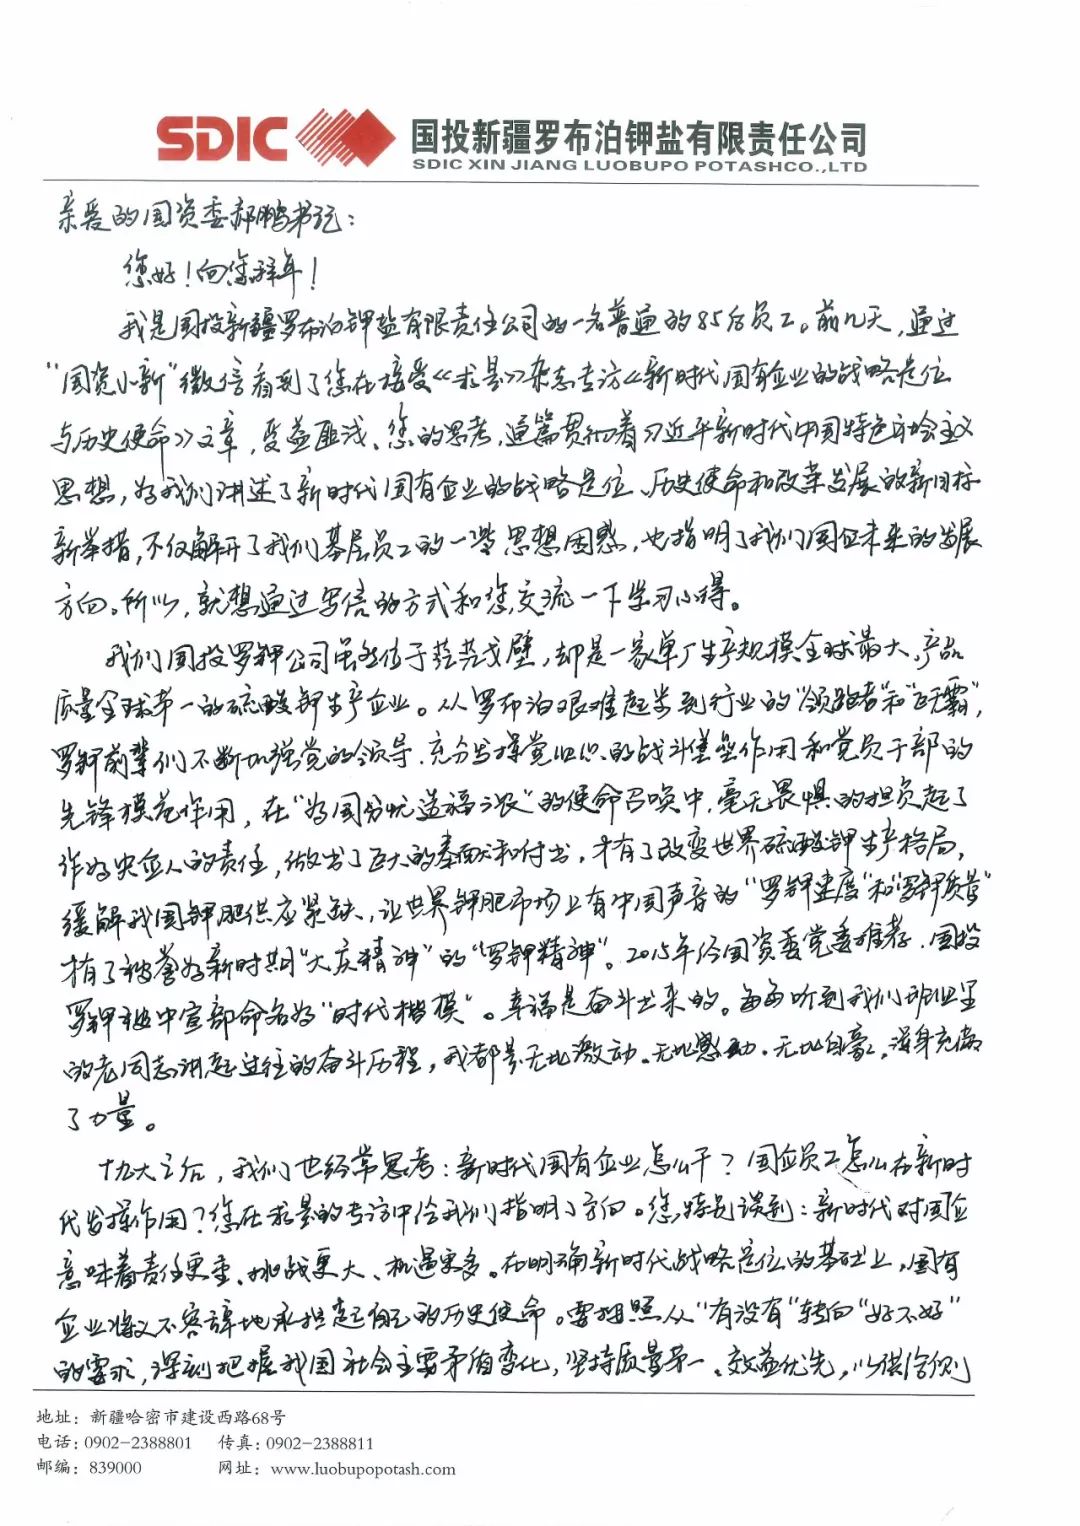 SDIC 国投新疆罗布泊钾盐有限责任公司
SDIC XIN JIANG LUOBUPO POTASHCO.,LTD
亲爱的国资委郝鹏书记：
您好！向您拜年！
我是国投新疆罗布泊钾盐有限责任公司的一名普通的85后员工。前几天，通过
“国资小新”微信看到了您在接受《求是》杂志专访《新时代国有企业的战略定位
与历史使命》文章，受益匪浅、您的思考，通篇贯彻着习近平新时代中国特色社会主义
思想，为我们讲述了新时代国有企业的战略定位、历史使命和改革发展的新目标
新举措，不仅解开了我们基层员工的一些思想困惑，也指明了我们国企未来的发展
方向。所以，就想通过写信的方式和您交流一下学习心得。
我们国投罗钾公司虽然位于茫茫戈壁，却是一家单厂生产规模全球最大，产品
质量全球第一的硫酸钾生产企业。从罗布泊艰难起步到行业的“领跑者”和“巨无霸”，
罗钾前辈们不断加强党的领导、充分发挥党组织的战斗堡垒作用和党员干部的
先锋模范作用，在“为国分忧造福三农”的使命召唤中，毫无畏惧的担负起了
作为央企人的责任，做出了巨大的奉献和付出，才有了改变世界硫酸钾生产格局，
缓解我国钾肥供应紧缺，让世界钾肥市场上有中国声音的“罗钾速度”和“罗钾质量”
才有了被誉为新时期“大庆精神”的“罗钾精神”。2015年经国资委党委推荐，国投
罗钾被中宣部命名为“时代楷模”。幸福是奋斗出来的。每每听到我们班组里
的老同志讲起过往的奋斗历程，我都是无比激动、无比感动、无比自豪，浑身充满
了力量。
十九大之后，我们也经常思考：新时代国有企业怎么干？国企员工怎么在新时
代发挥作用？您在求是的专访中给我们指明了方向。您特别谈到：新时代对国企
意味着责任更重、挑战更大、机遇更多。在明确新时代战略定位的基础上，国有
企业将义不容辞地承担起自己的历史使命。要按照从“有没有”转向“好不好”
的要求，深刻把握我国社会主要矛盾变化，坚持质量第一、效益优先，以供给侧
地址：新疆哈密市建设西路68号
电话：0902-2388801 传真：0902-2388811
邮编：839000 网址：www.luobupopotash.com